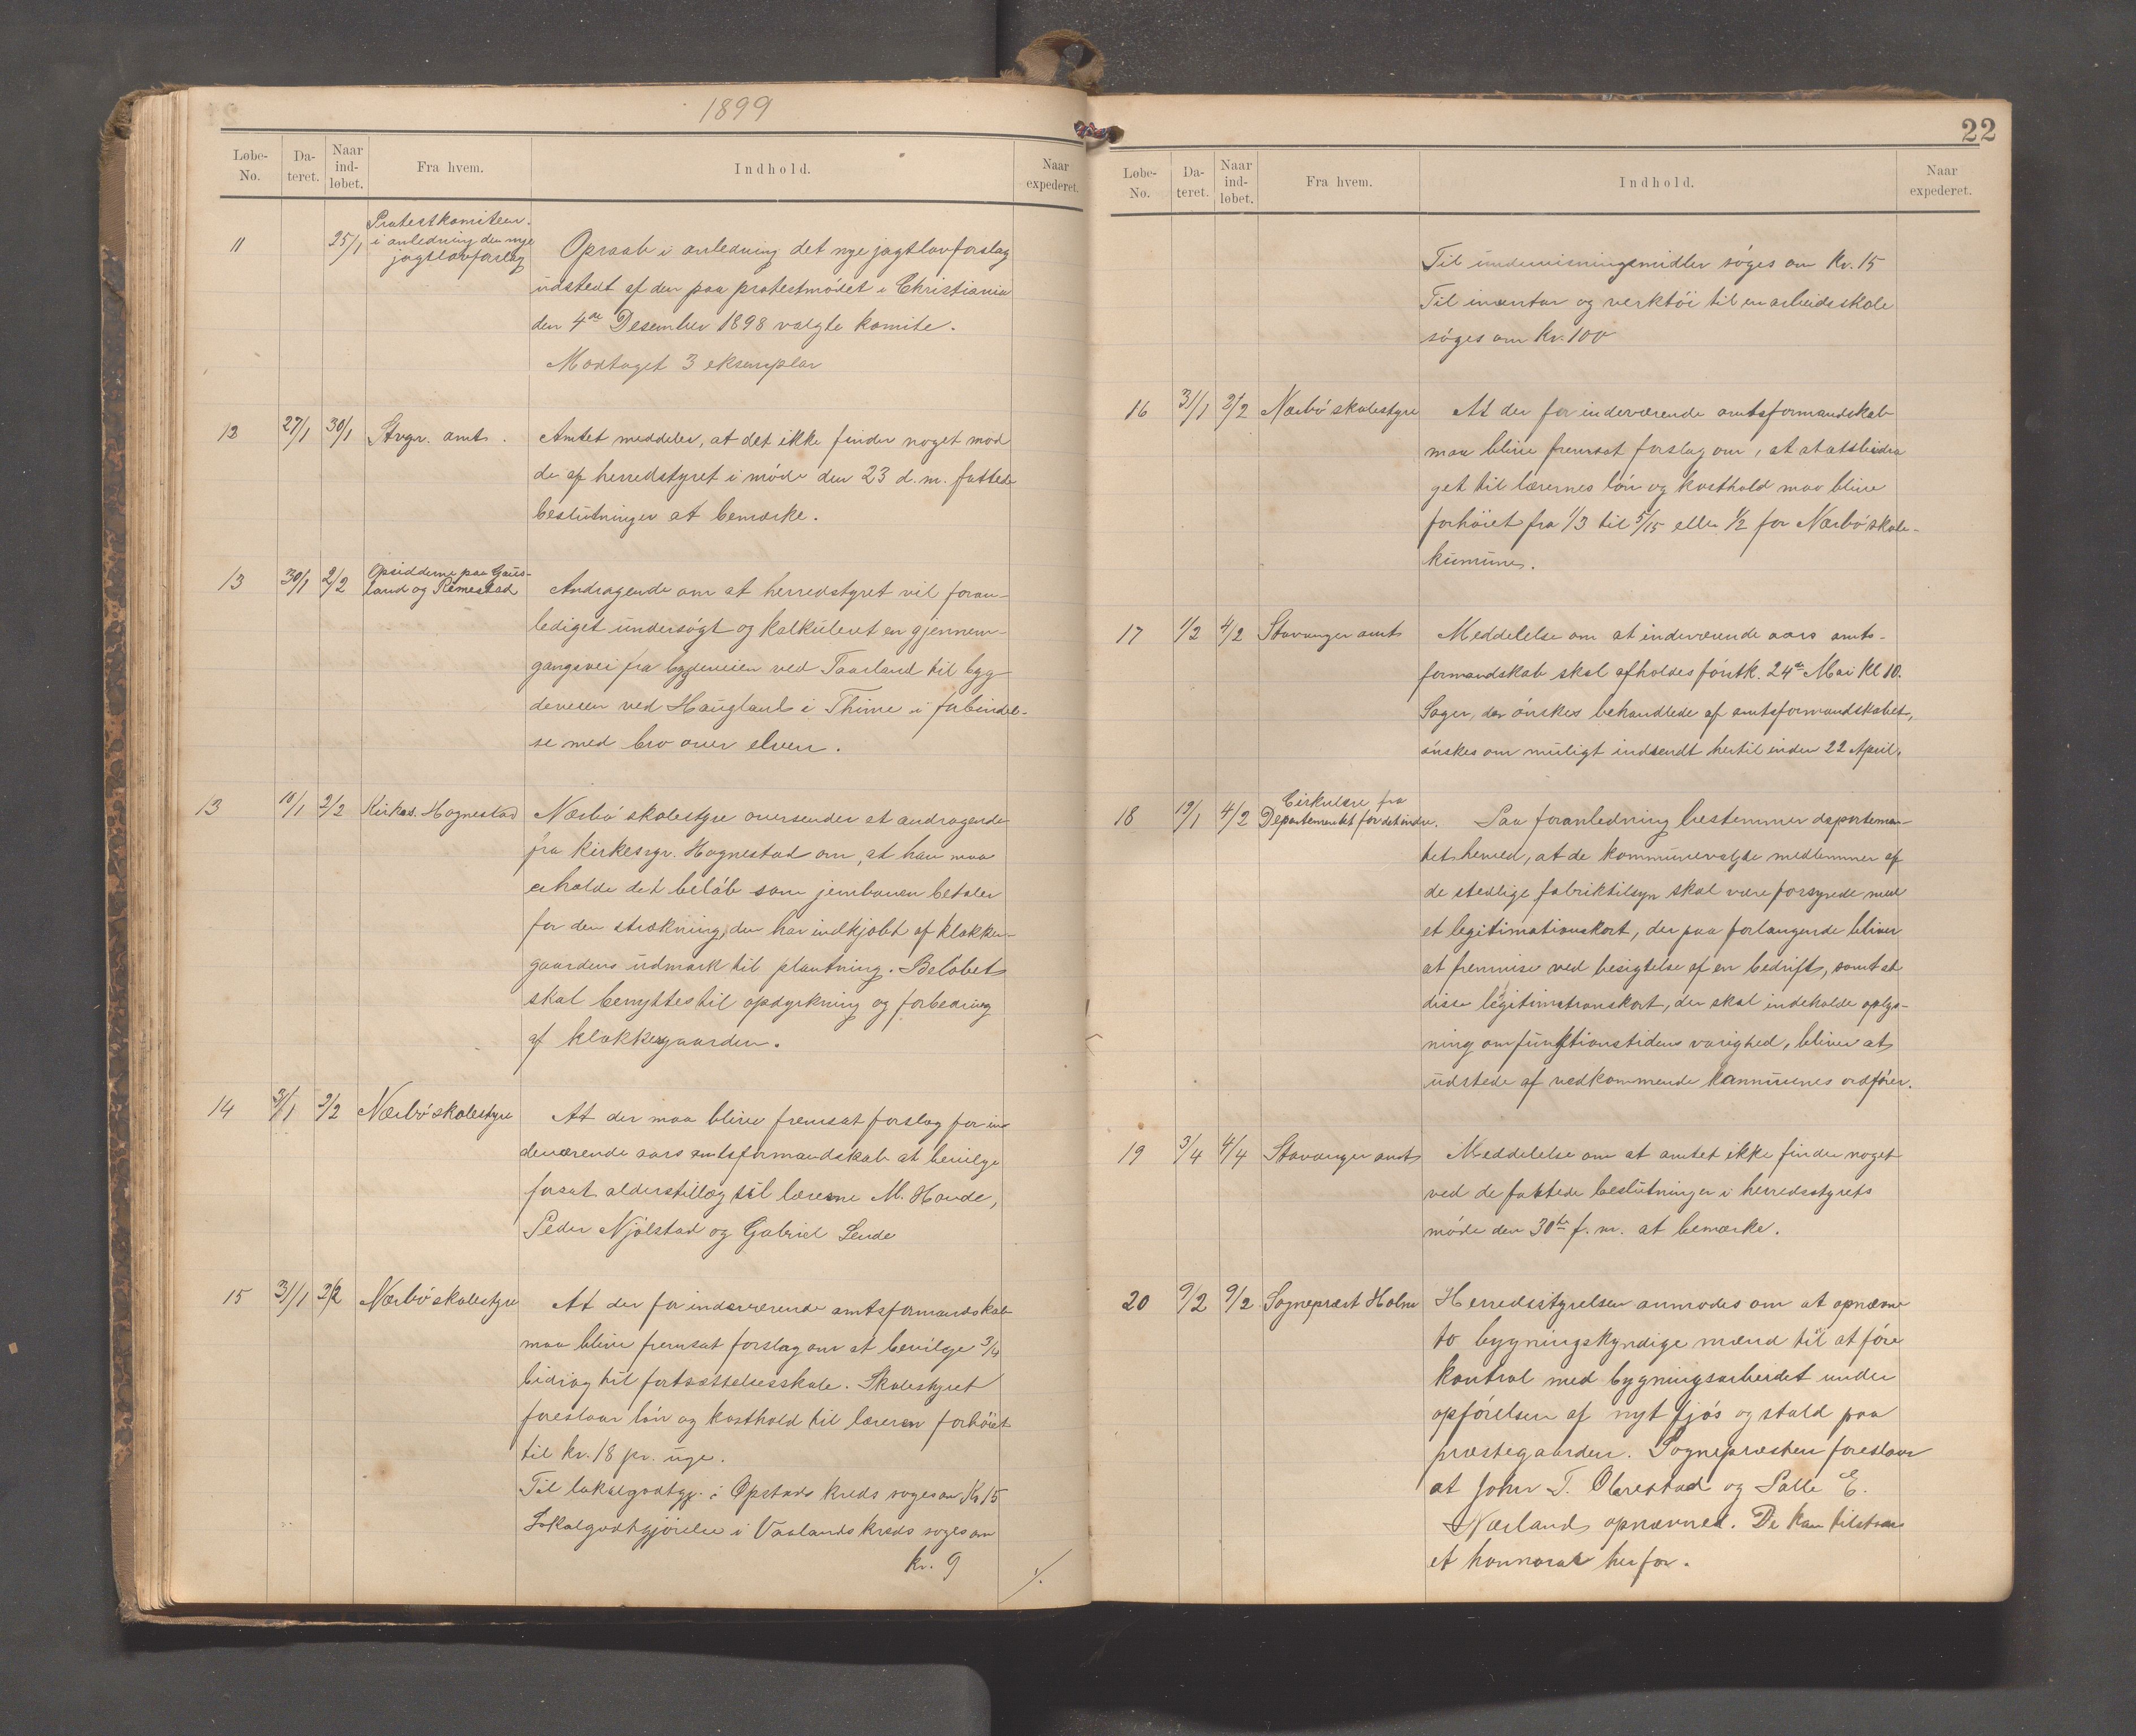 1899
Løbe-No. Da-teret. Naar ind-løbet. Fra hvem. Indhold. Naar expederet.
11 25/1 Protestkomiteen i anledning den nye jagtlovforslag
Opraab i anledning det nye jagtlovforslag
udstedt af den paa protestmödet i Christiania
den 4de Desember 1898 valgte komite.
Modtaget 3 eksemplar
12 27/1 30/1 Stvgr. amt. Amtet meddeler, at det ikke finder noget mod
de af herredstyret i möde den 23 d. m. fattede
beslutninger at bemærke.
13 30/1 2/2 Opsidderne paa Gaus-
land og Rimestad Andragende om at herredstyret vil foran-
lediget undersögt og kalkuleret en gjennem-
gangsvei fra bygdeveien ved Taarland til byg-
deveien ved Haugland i Thime i forbindel-
se med bro over elven.
13 10/1 2/2 Kirkes. Hognestad Nærbö skolestyre oversender et andragende
fra kirkesgr. Hognestad om, at han maa
erholde det belöb som jernbanen betaler
for den strækning, der har indkjöbt af klokker-
gaardens udmark til plantning. Belöbet
skal benyttes til opdyrkning og forbedring
af klokkergaarden.
14 31/1 3/2 Nærbö skolestyre At der maa blive fremsat forslag for in
deværende aars amtsformandskab at bevilge
fosat alderstillæg til lærerne M. Haude,
Peder Njölstad og Gabriel Lende
15 31/1 3/2 Nærbö skolestyre At der for indeværende amtsformandskab
maa blive fremsat forslag om at bevilge 3/4
bidrag til fortsættelsesskole. Skolestyret
foreslaar lön og kosthold til læreren forhöiet
til kr. 18 pr. uge.
Til lokalgodtgj. i Opstad kreds söges om Kr 15
Lokalgodtgjörelse i Vaalands kreds söges om
kr. 9
./.
22
Løbe-No. Da-teret. Naar ind-løbet. Fra hvem. Indhold. Naar expederet.
Til undervisningsmidler söges om Kr. 15
Til inventar og verktöi til en arbeidsskole
söges om Kr. 100
16 31/1 3/2 Nærbö skolestyre At der for indeværende amtsformandskab
maa blive fremsat forslag om, at statsbidra
get til lærernes lön og kosthold maa blive
forhöiet fra 1/3 til 5/15 eller 1/2 for Nærbö skole-
kumune.
17 1/2 4/2 Stavanger amt Meddelelse om at indeværende aars amts-
formandskab skal afholdes förstk. 24de Mai Kl 10.
Sager, der önskes behandlede af amtsformandskabet,
önskes om muligt indsendt hertil inden 22 April.
18 19/1 4/2 Cirkulære fra
Departementet for det indre. Paa foranledning bestemmer departemen-
tet herved, at de kommunevalgte medlemmer af
de stedlige fabriktilsyn skal være forsynede med
et legitimationskort, der paa forlangende bliver
at fremvise ved besigtelse af en bedrift, samt at
disse legitimationskort, der skal indeholde oplys-
ning om funktionstidens varighed, bliver at
udstede af vedkommende kommunes ordförer.
19 3/4 4/4 Stavanger amt Meddelelse om at amtet ikke finder noget
ved de fattede beslutninger i herredsstyrets
möde den 30te f. m. at bemærke.
20 9/2 9/2 Sogneprest Holm Herredsstyrelsen anmodes om at opnævne
to bygningskyndige mænd til at före
kontrol med bygningsarbeidet under
opförelsen af nyt fjös og stald paa
præstegaarden. Sognepræsten foreslaar
at John T. Obrestad og Salle E.
Nærland opnævnes. De kan tilstaaes
et honnorar herfor.